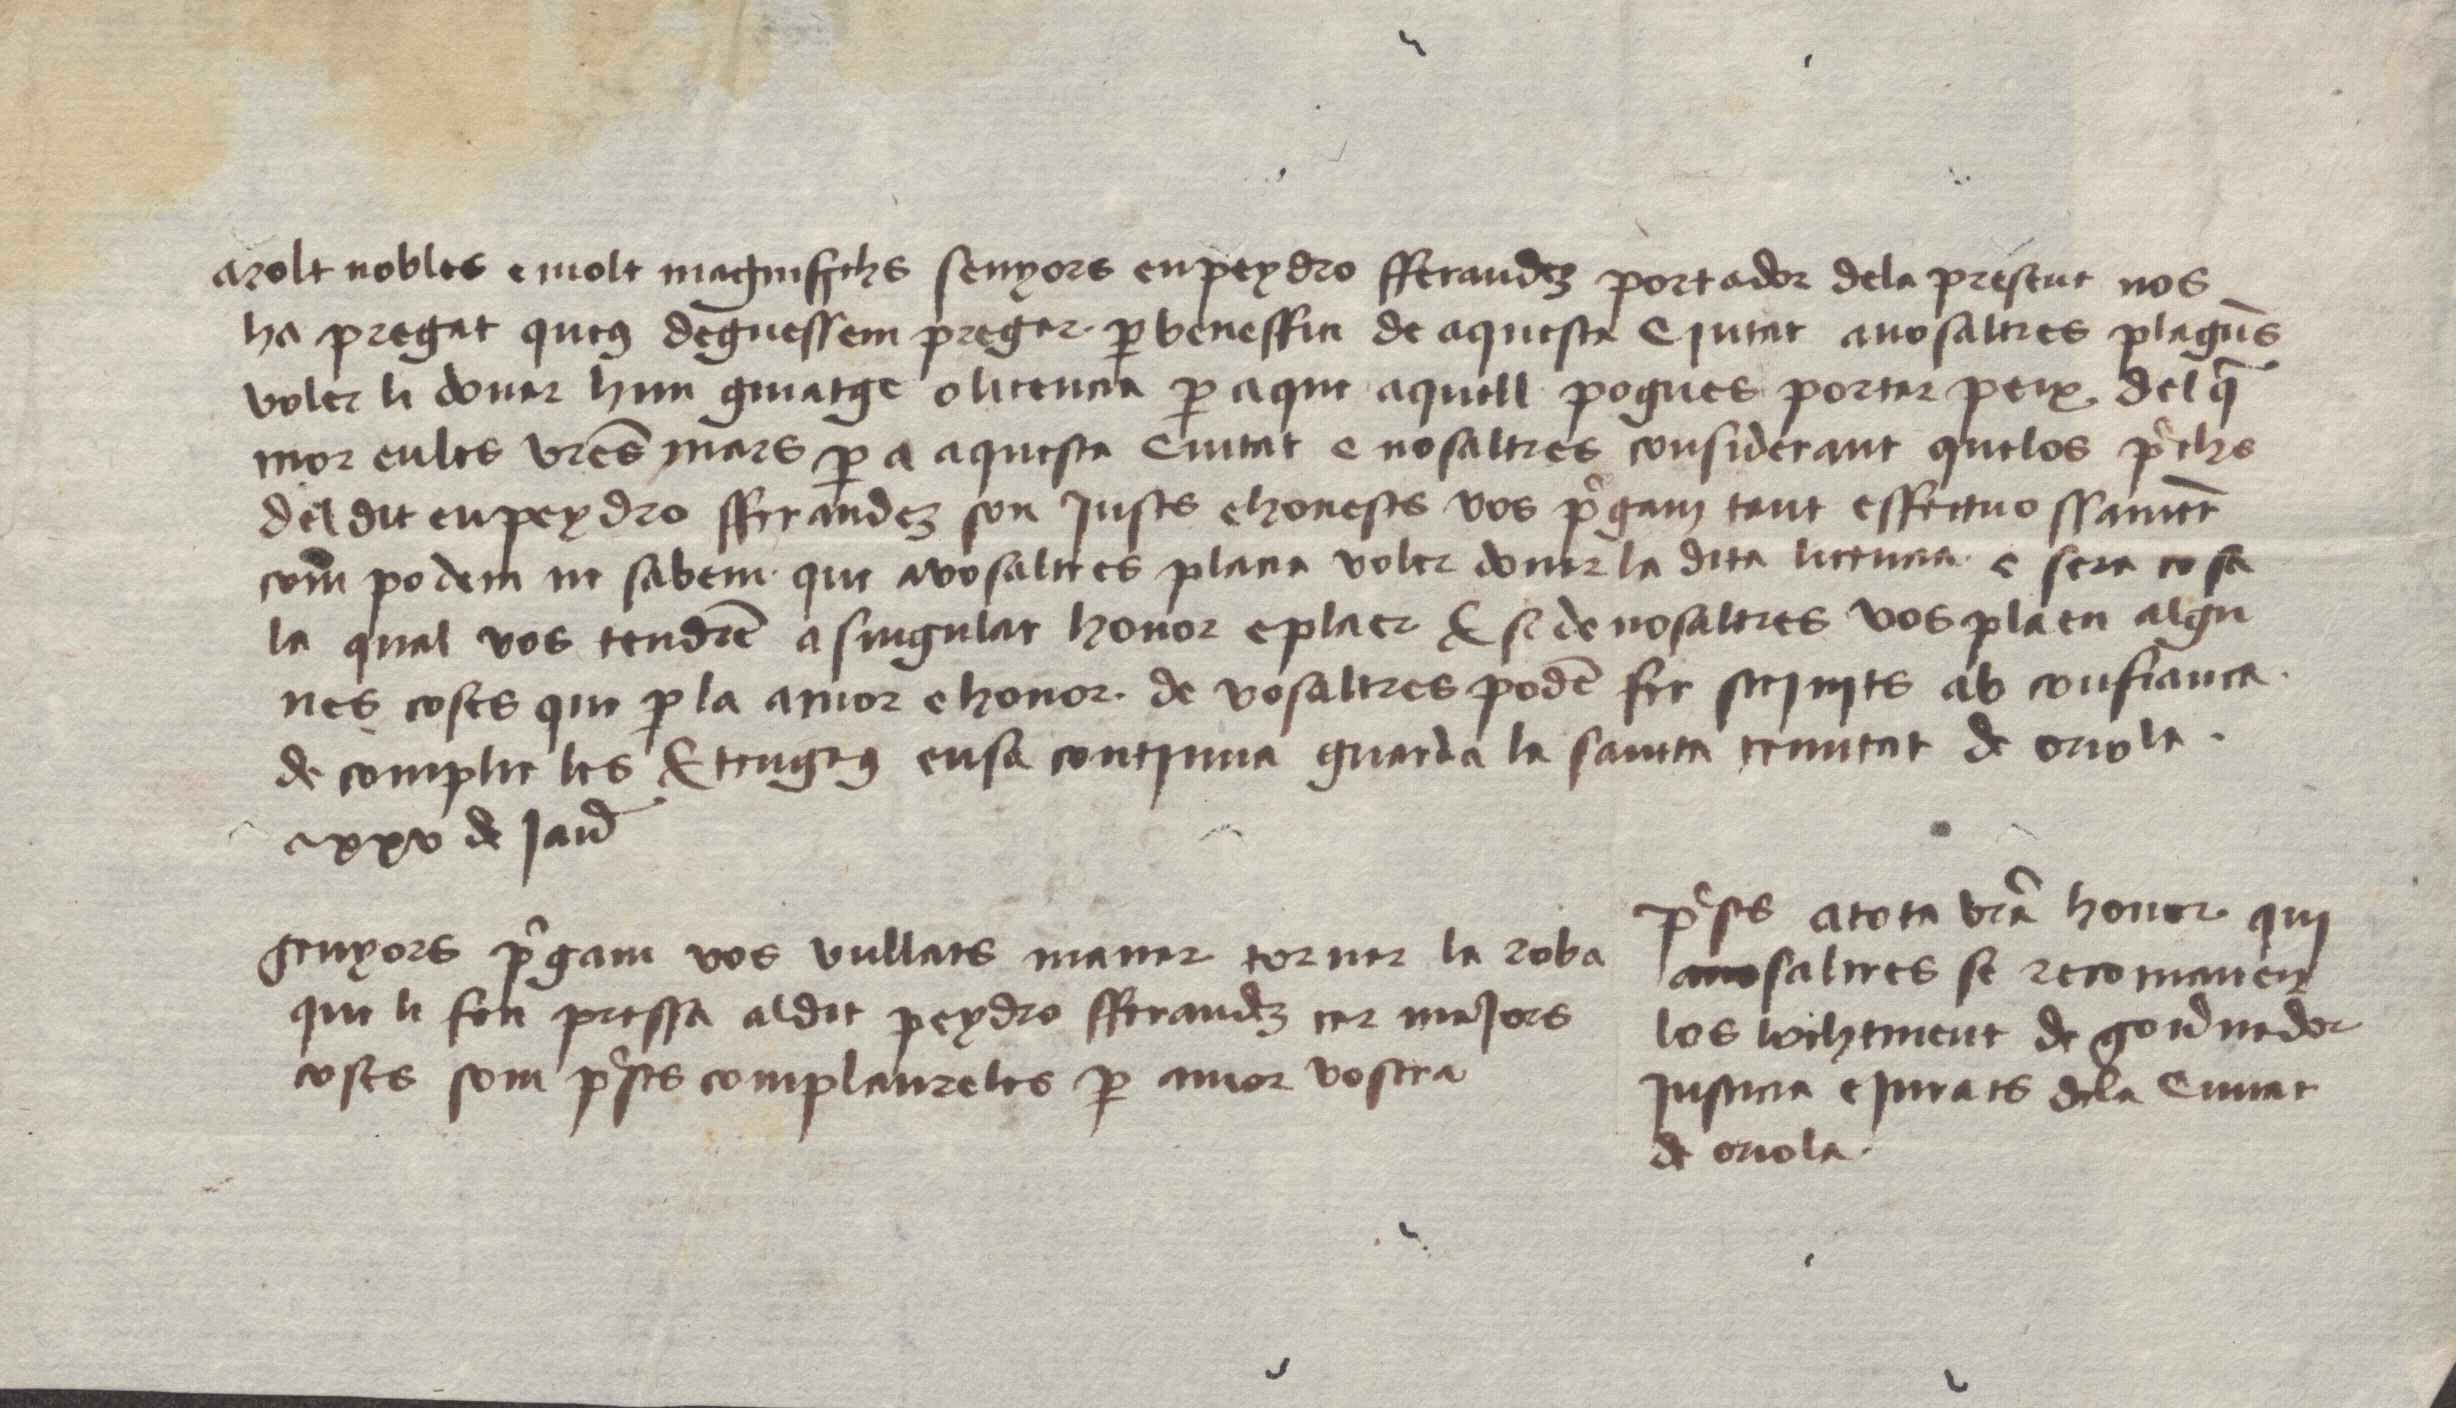 Molt nobles e molt magnifichs senyors en peydro fferandez portador dela present nos
ha pregat queus deguessem pregar per beneffici de aquesta Ciutat a vosaltres plagues
voler li donar hun guiatge o licencia per a que aquell pogues portar peix del q̃
mor en les vr̃es mars per a aquesta Ciutat e nosaltres considerant que los p̃chs
del dit en peydro fferandez son Justs e honests vos p̃gam tant effectuossamẽt
com podem ne sabem que a vosaltres placia voler donar la dita licencia e sera cosa
la qual vos tendrẽ a singular honor e plaer E si de nosaltres vos plaen algu
nes coses que per la amor e honor de vosaltres podẽ fer scrivits ab confianca
de complir les E tengaus en sa continua guarda la santa trinitat de oriola
a xxv de Janer
Senyors p̃gam vos vullats manar tornar la roba
que li fon pressa al dit peydro fferandez car maJors
coses som p̃sts complaureles per amor vostra
p̃sts a tota vr̃a honor qui
a vosaltres se recomanen
los lochtinent de gov̾nador
Justicia e Jurats dela Ciutat
de oriola